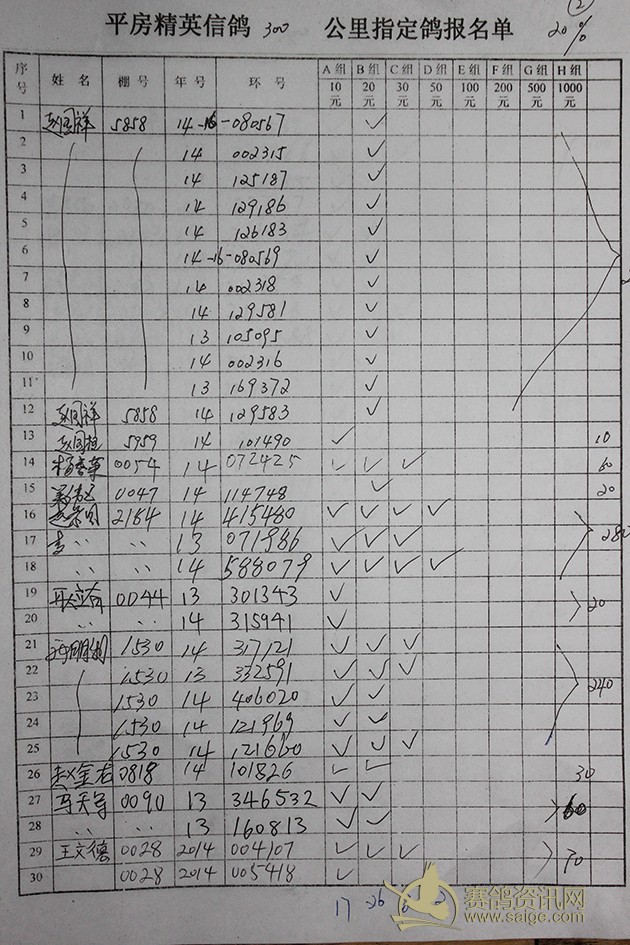 ②
平房精英信鸽 300 公里指定鸽报名单 20%
序号 姓名 棚号 年号 环号 A组 10元 B组 20元 C组 30元 D组 50元 E组 100元 F组 200元 G组 500元 H组 1000元
1 赵国祥 5858 14-16-080567 ✓
2 14 002315 ✓
3 14 125187 ✓
4 14 129186 ✓
5 14 126183 ✓
6 14-16-080569 ✓
7 14 002318 ✓
8 14 129581 ✓
9 13 105095 ✓
10 14 002316 ✓
11 13 169372 ✓
12 赵国祥 5858 14 129583 ✓
13 5959 14 101490 ✓ 10
14 0054 14 072425 ✓ ✓ ✓ 60
15 0047 14 114748 ✓ 20
16 2164 14 415480 ✓ ✓ ✓ ✓
17 13 071986 ✓ ✓ ✓ 280
18 14 588079 ✓ ✓ ✓ ✓
19 0044 13 301343 ✓
20 14 315941 ✓ 20
21 1530 14 317121 ✓ ✓ ✓
22 1530 13 332591 ✓ ✓ ✓
23 1530 14 406020 ✓ ✓ 240
24 1530 14 121969 ✓ ✓
25 1530 14 121660 ✓ ✓ ✓
26 赵金右 0818 14 101826 ✓ ✓ 30
27 马天军 0090 13 346532 ✓ ✓ 60
28 13 160813 ✓ ✓
29 王文德 0028 2014 004107 ✓ ✓ ✓ 70
30 0028 2014 005418 ✓
17 26
赛鸽资讯网
www.saige.com